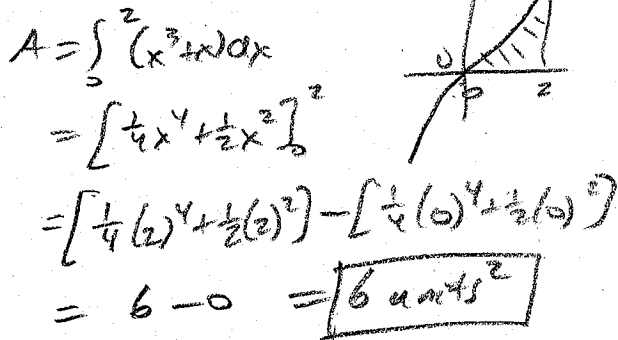 A = ∫₀² (x³+x)dx
= [¼x⁴+½x²]₀²
= [¼(2)⁴+½(2)²]-[¼(0)⁴+½(0)²]
= 6-0 = 6 units²
0 0 2